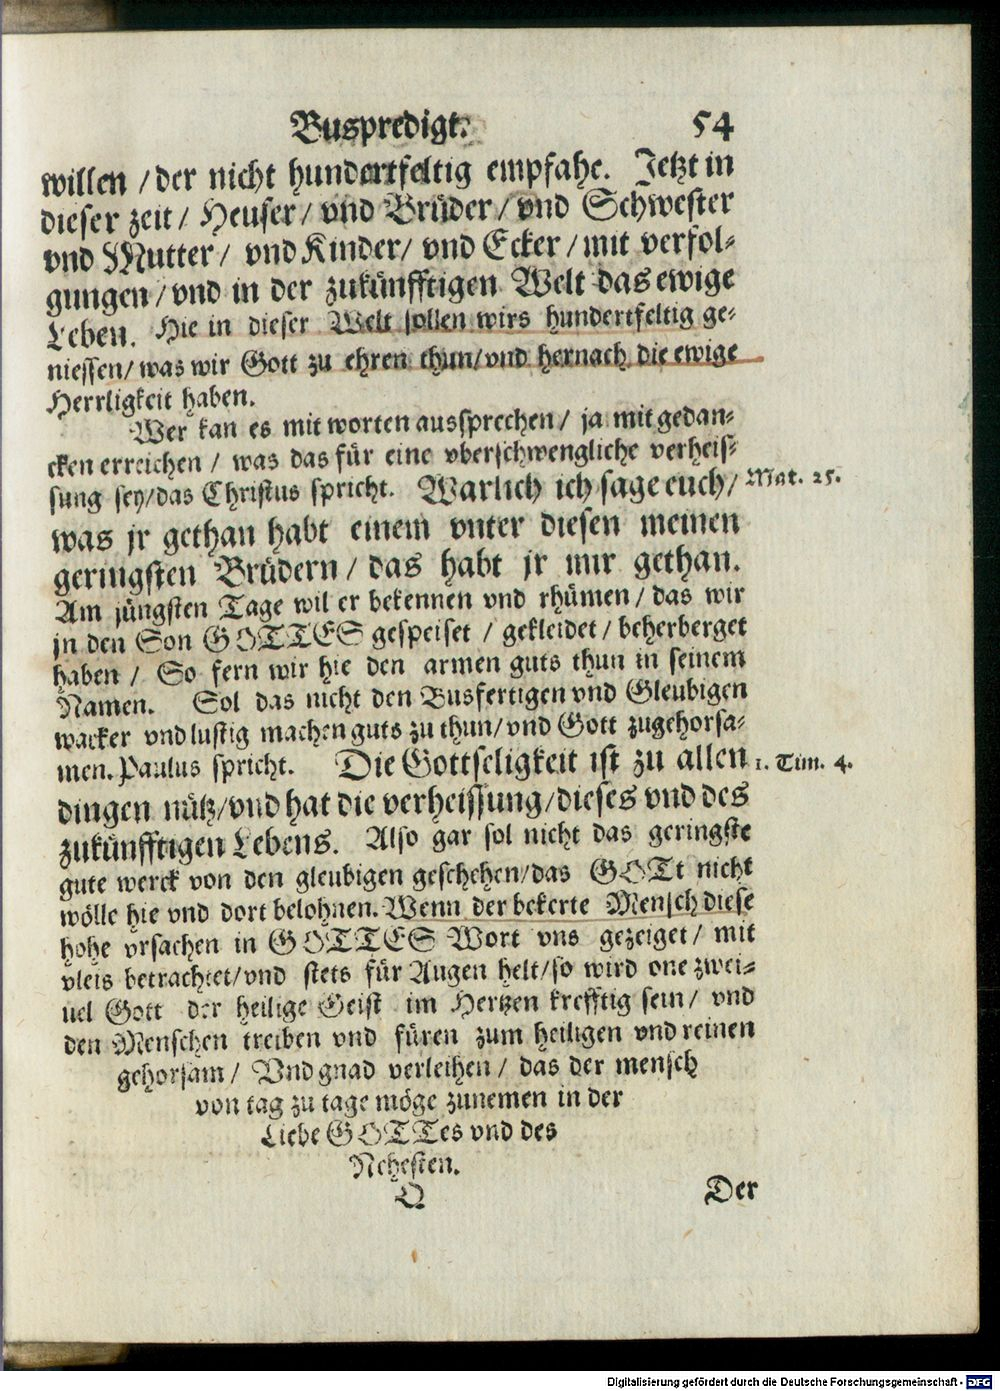 Buspredigt. 54
willen / der nicht hundertfeltig empfahe. Jetzt in
dieser zeit / Heuser / vnd Brüder / vnd Schwester
vnd Mutter / vnd Kinder / vnd Ecker / mit verfol-
gungen / vnd in der zukünfftigen Welt das ewige
Leben. Hie in dieser Welt sollen wirs hundertfeltig ge-
niessen / was wir Gott zu ehren thun / vnd hernach die ewige
Herrligkeit haben.
Wer kan es mit worten aussprechen / ja mit gedan-
cken erreichen / was das für eine vberschwengliche verheis-
sung sey / das Christus spricht. Warlich ich sage euch / Mat. 25.
was jr gethan habt einem vnter diesen meinen
geringsten Brüdern / das habt jr mir gethan.
Am jüngsten Tage wil er bekennen vnd rhümen / das wir
jn den Son GOTTES gespeiset / gekleidet / beherberget
haben / So fern wir hie den armen guts thun in seinem
Namen. Sol das nicht den Busfertigen vnd Gleubigen
wacker vnd lustig machen guts zu thun / vnd Gott zugehorsa-
men. Paulus spricht. Die Gottseligkeit ist zu allen 1. Tim. 4.
dingen nütz / vnd hat die verheissung / dieses vnd des
zukünfftigen Lebens. Also gar sol nicht das geringste
gute werck von den gleubigen geschehen / das GOTt nicht
wölle hie vnd dort belohnen. Wenn der bekerte Mensch diese
hohe vrsachen in GOTTES Wort vns gezeiget / mit
vleis betrachtet / vnd stets für Augen helt / so wird one zwei-
uel Gott der heilige Geist im Hertzen krefftig sein / vnd
den Menschen treiben vnd füren zum heiligen vnd reinen
gehorsam / Vnd gnad verleihen / das der mensch
von tag zu tage möge zunemen in der
Liebe GOTTes vnd des
Nehesten.
O Der
Digitalisierung gefördert durch die Deutsche Forschungsgemeinschaft - DFG